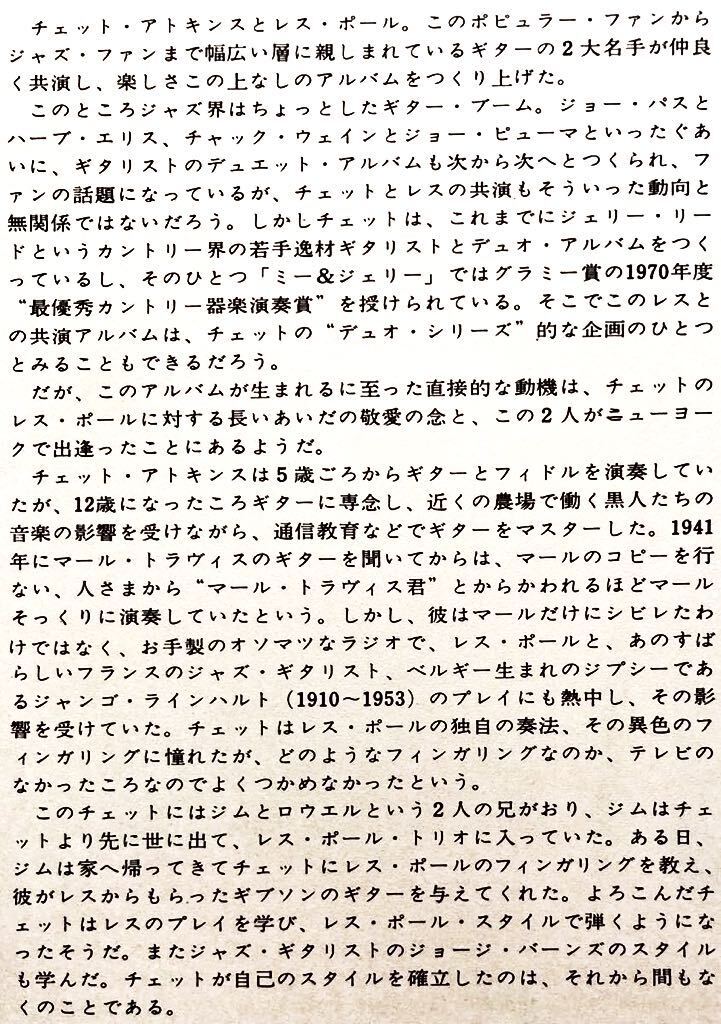 チェット・アトキンスとレス・ポール。このポピュラー・ファンから
ジャズ・ファンまで幅広い層に親しまれているギターの2大名手が仲良
く共演し、楽しさこの上なしのアルバムをつくり上げた。
このところジャズ界はちょっとしたギター・ブーム。ジョー・パスと
ハーブ・エリス、チャック・ウェインとジョー・ピューマといったぐあ
いに、ギタリストのデュエット・アルバムも次から次へとつくられ、フ
ァンの話題になっているが、チェットとレスの共演もそういった動向と
無関係ではないだろう。しかしチェットは、これまでにジェリー・リー
ドというカントリー界の若手逸材ギタリストとデュオ・アルバムをつく
っているし、そのひとつ「ミー&ジェリー」ではグラミー賞の1970年度
“最優秀カントリー器楽演奏賞”を授けられている。そこでこのレスと
の共演アルバムは、チェットの“デュオ・シリーズ”的な企画のひとつ
とみることもできるだろう。
だが、このアルバムが生まれるに至った直接的な動機は、チェットの
レス・ポールに対する長いあいだの敬愛の念と、この2人がニューヨー
クで出逢ったことにあるようだ。
チェット・アトキンスは5歳ごろからギターとフィドルを演奏してい
たが、12歳になったころギターに専念し、近くの農場で働く黒人たちの
音楽の影響を受けながら、通信教育などでギターをマスターした。1941
年にマール・トラヴィスのギターを聞いてからは、マールのコピーを行
ない、人さまから“マール・トラヴィス君”とからかわれるほどマール
そっくりに演奏していたという。しかし、彼はマールだけにシビレたわ
けではなく、お手製のオソマツなラジオで、レス・ポールと、あのすば
らしいフランスのジャズ・ギタリスト、ベルギー生まれのジプシーであ
るジャンゴ・ラインハルト（1910〜1953）のプレイにも熱中し、その影
響を受けていた。チェットはレス・ポールの独自の奏法、その異色のフ
ィンガリングに憧れたが、どのようなフィンガリングなのか、テレビの
なかったころなのでよくつかめなかったという。
このチェットにはジムとロウエルという2人の兄がおり、ジムはチェ
ットより先に世に出て、レス・ポール・トリオに入っていた。ある日、
ジムは家へ帰ってきてチェットにレス・ポールのフィンガリングを教え、
彼がレスからもらったギブソンのギターを与えてくれた。よろこんだチ
ェットはレスのプレイを学び、レス・ポール・スタイルで弾くようにな
ったそうだ。またジャズ・ギタリストのジョージ・バーンズのスタイル
も学んだ。チェットが自己のスタイルを確立したのは、それから間もな
くのことである。